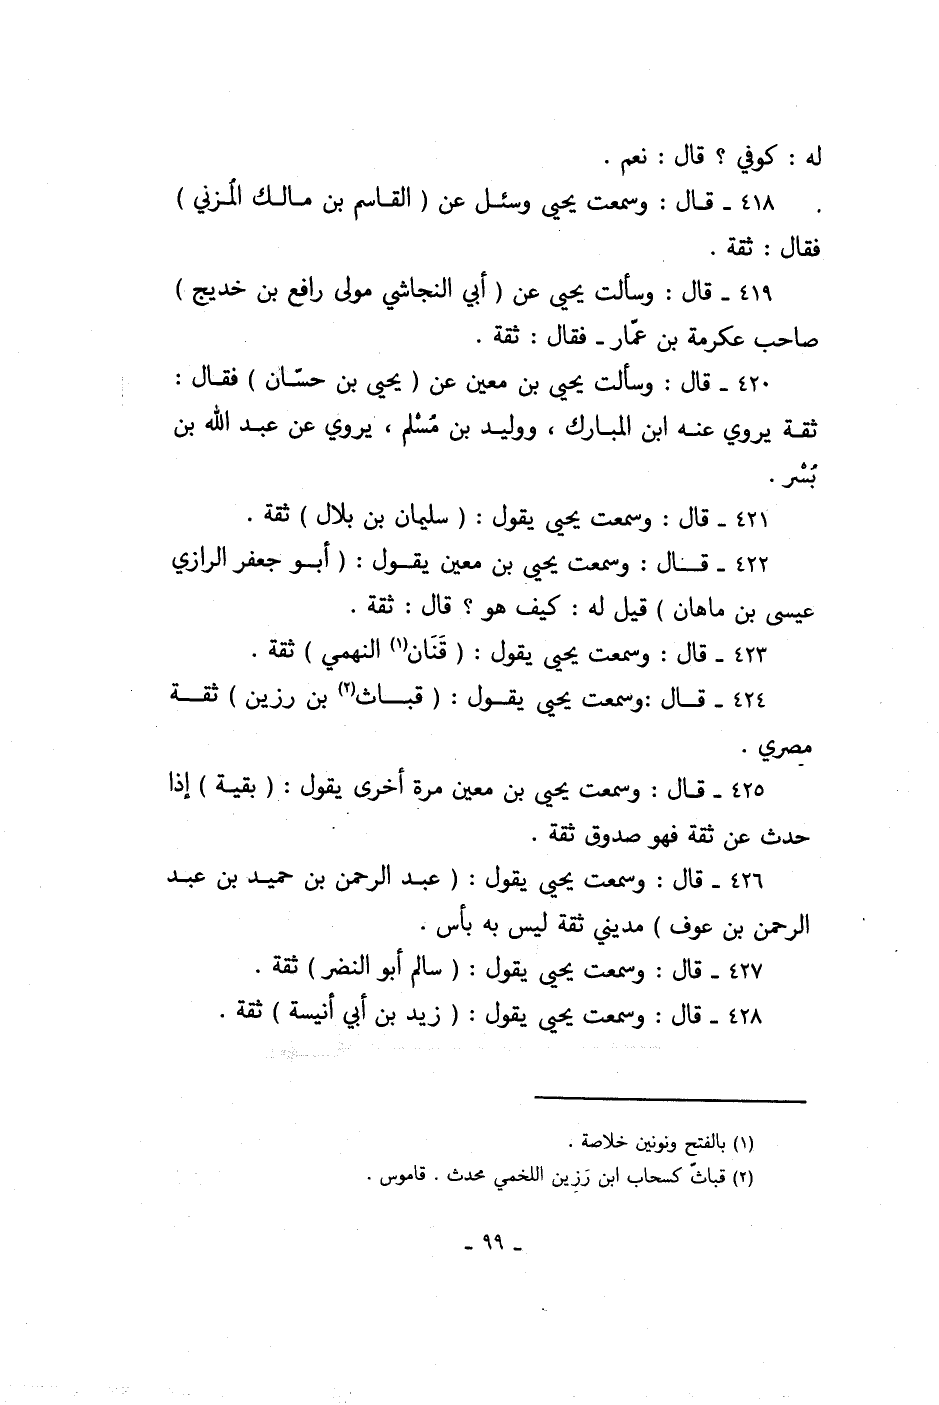 له : كوفي ؟ قال : نعم .
٤١٨ ـ قال : وسمعت يحيى وسئل عن ( القاسم بن مالك المُزني )
فقال : ثقة .
٤١٩ ـ قال : وسألت يحيى عن ( أبي النجاشي مولى رافع بن خديج )
صاحب عكرمة بن عمّار ـ فقال : ثقة .
٤٢٠ ـ قال : وسألت يحيى بن معين عن ( يحيى بن حسّان ) فقال :
ثقة يروي عنه ابن المبارك ، ووليد بن مُسْلم ، يروي عن عبد الله بن
بُسْر .
٤٢١ ـ قال : وسمعت يحيى يقول : ( سليمان بن بلال ) ثقة .
٤٢٢ ـ قال : وسمعت يحيى بن معين يقول : ( أبو جعفر الرازي
عيسى بن ماهان ) قيل له : كيف هو ؟ قال : ثقة .
٤٢٣ ـ قال : وسمعت يحيى يقول : ( قَنَان(١) النهمي ) ثقة .
٤٢٤ ـ قال :وسمعت يحيى يقول : ( قباث(٢) بن رزين ) ثقة
مصري .
٤٢٥ ـ قال : وسمعت يحيى بن معين مرة أخرى يقول : ( بقية ) إذا
حدث عن ثقة فهو صدوق ثقة .
٤٢٦ ـ قال : وسمعت يحيى يقول : ( عبد الرحمن بن حميد بن عبد
الرحمن بن عوف ) مديني ثقة ليس به بأس .
٤٢٧ ـ قال : وسمعت يحيى يقول : ( سالم أبو النضر ) ثقة .
٤٢٨ ـ قال : وسمعت يحيى يقول : ( زيد بن أبي أنيسة ) ثقة .
(١) بالفتح ونونين خلاصة .
(٢) قباثّ كسحاب ابن رَزِين اللخمي محدث . قاموس .
ـ ٩٩ ـ